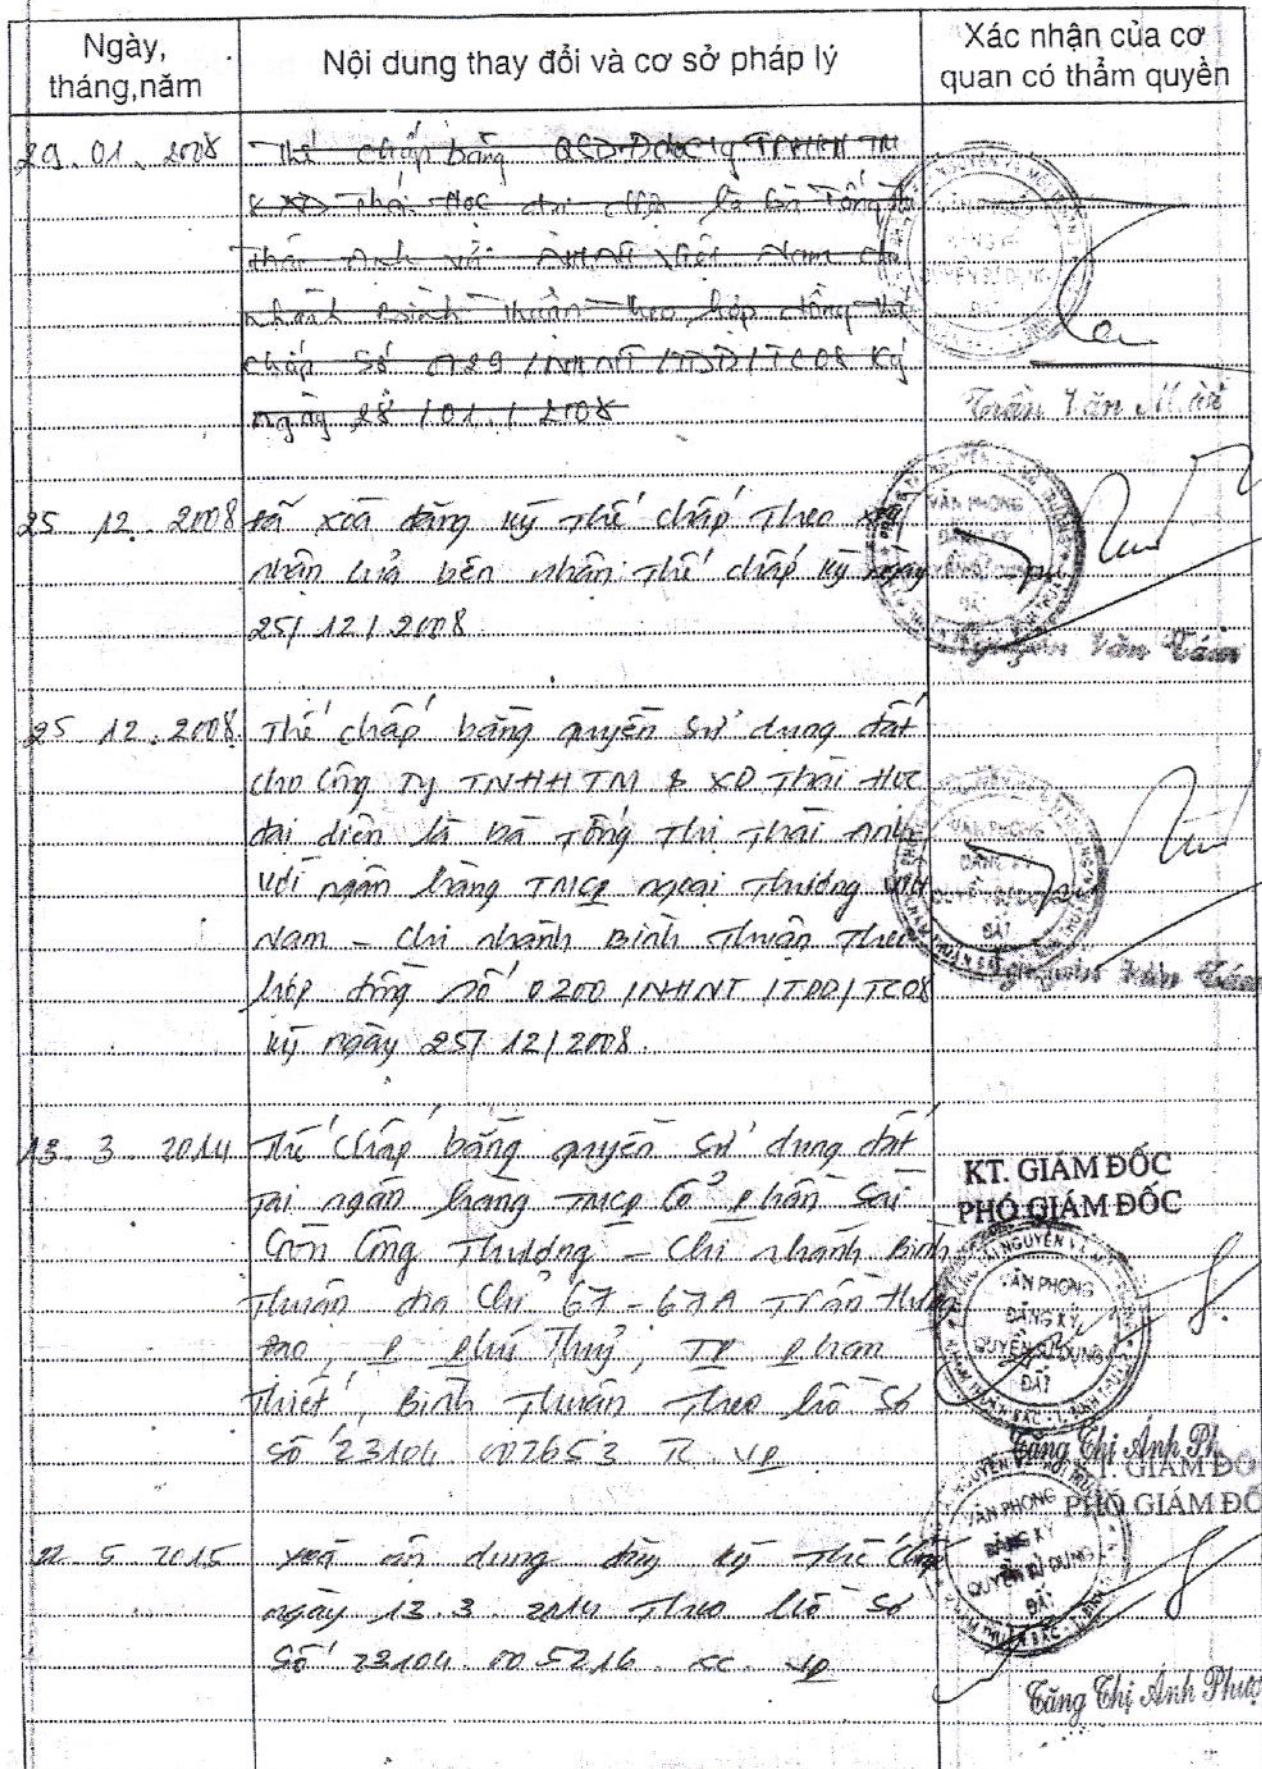 Ngày,
tháng,năm
Nội dung thay đổi và cơ sở pháp lý
Xác nhận của cơ
quan có thẩm quyền
29. 01. 2008
Thế chấp bằng QSD Đ cho C ty TNHH TM
& XD Thái Học đại diện là bà Tống Thị
Thái Anh với NHNT Việt Nam chi
nhánh Bình Thuận theo hợp đồng thế
chấp số 0129 /NHNT /TDD/TC08 ký
ngày 28 /01 / 2008
Trần Văn Mười
25 12. 2008
đã xóa đăng ký thế chấp theo xác
nhận của bên nhận thế chấp ký ngày
25/ 12 / 2008
VĂN PHÒNG
ĐĂNG KÝ
QUYỀN SỬ DỤNG
ĐẤT
Nguyễn Văn Tám
25. 12. 2008
Thế chấp bằng quyền sử dụng đất
cho Công Ty TNHH TM & XD Thái Học
đại diện là bà Tống Thị Thái Anh
với ngân hàng TMCP ngoại thương Việt
Nam - Chi nhánh Bình Thuận theo
hợp đồng số 0200 /NHNT /TDD/TC08
ký ngày 25/ 12/ 2008.
VĂN PHÒNG
ĐĂNG KÝ
QUYỀN SỬ DỤNG
ĐẤT
Nguyễn Văn Tám
13. 3. 2014
Thế chấp bằng quyền sử dụng đất
tại ngân hàng TMCP Cổ phần Sài
Gòn Công Thương - Chi nhánh Bình
Thuận địa chỉ 67 - 67A Trần Hưng
Đạo, P Phú Thuỷ, TP Phan
Thiết, Bình Thuận theo hồ sơ
số 23104. 002653. TC. VP
KT. GIÁM ĐỐC
PHÓ GIÁM ĐỐC
VĂN PHÒNG
ĐĂNG KÝ
QUYỀN SỬ DỤNG
ĐẤT
Tăng Thị Ánh Ph
22. 5. 2015
xoá nội dung đăng ký thế chấp
ngày 13. 3. 2014 theo hồ sơ
số 23104. 005216. XC. VP
KT. GIÁM ĐỐ
PHÓ GIÁM ĐỐ
VĂN PHÒNG
ĐĂNG KÝ
QUYỀN SỬ DỤNG
ĐẤT
Tăng Thị Ánh Phượ